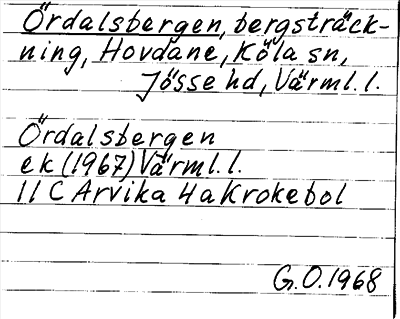 Ördalsbergen, bergsträck-
ning, Hovdane, Köla sn,
Jösse hd, Värml. l.
Ördalsbergen
ek (1967) Värml. l.
11 C Arvika 4a Krokebol
G.O. 1968